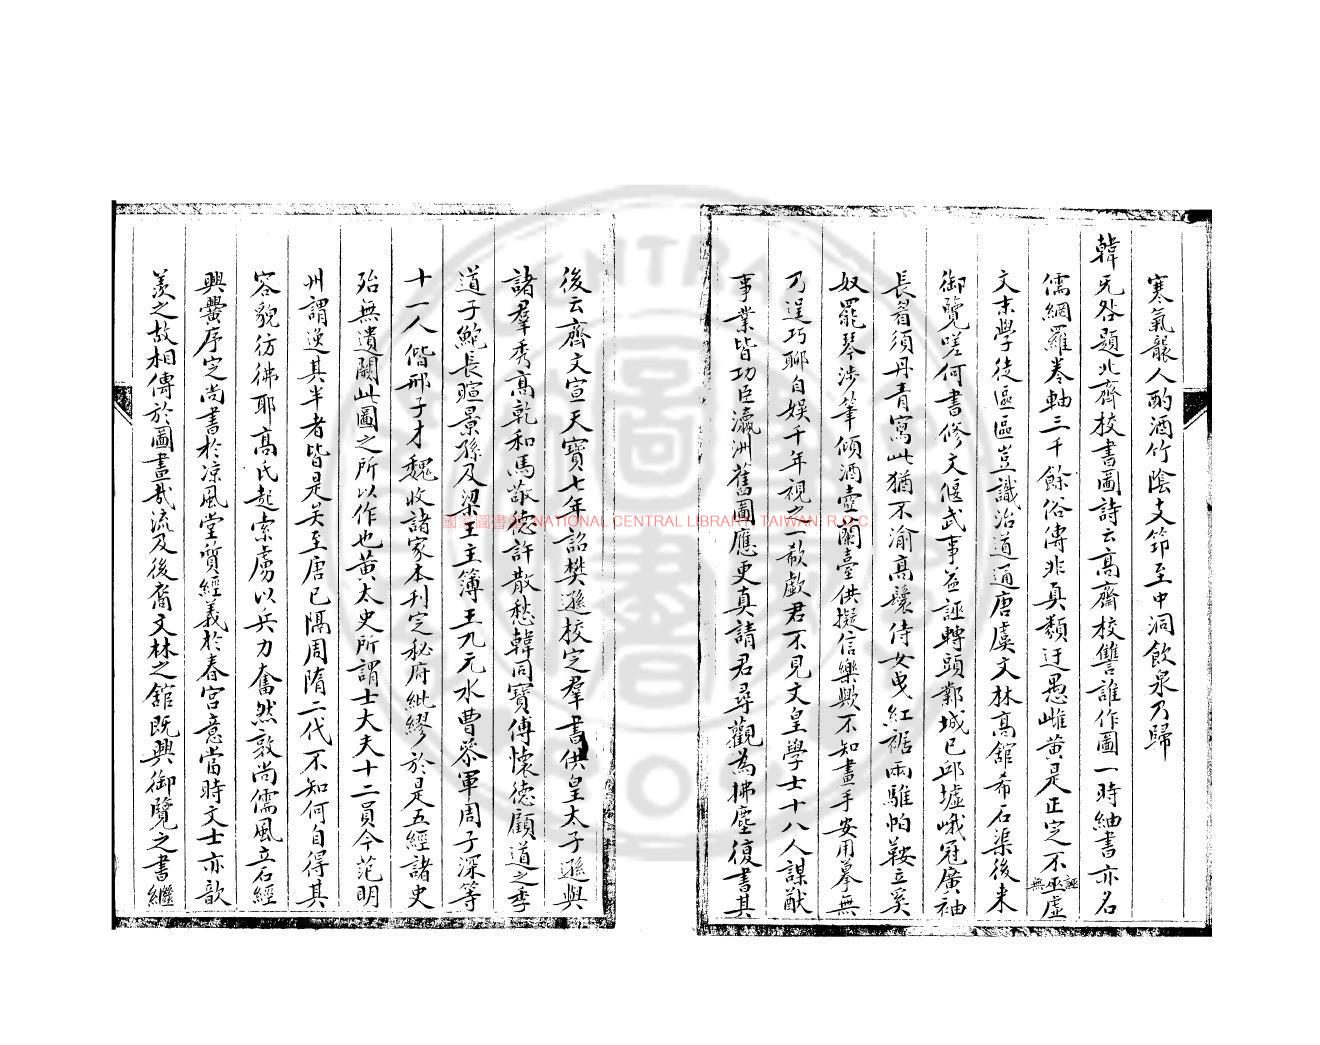 寒氣襲人酌酒竹陰支筇至中洞飲泉乃歸
韓无咎題北齊校書圖詩云高齋校讐誰作圖一時紬書亦名
儒網羅卷軸三千餘俗傳非真類迂愚雌黃是正定不無巫誣虛
文末學徒區區豈識治道通唐虞文林高館希石渠後來
御覽嗟何書修文偃武事益誣轉頭鄴城已邱墟峨冠廣袖
長眉須丹青寫此猶不渝高鬟侍女曳紅裾兩騅帕鞍立奚
奴罷琴涉筆傾酒壺蘭臺供擬信樂歟不知畫手安用摹無
乃逞巧聊自娛千年視之一欷歔君不見文皇學士十八人謀猷
事業皆功臣瀛洲舊圖應更真請君尋觀為拂塵復書其
後云齊文宣天寶七年詔樊遜校定羣書供皇太子遜與
諸羣秀高乾和馬敬德許散愁韓同寶傅懷德顧道之季
道子鮑長暄景孫及梁主主簿王九元水曹參軍周子深等
十一人偕邢子才魏收諸家本刊定秘府紕繆於是五經諸史
殆無遺闕此圖之所以作也黃太史所謂士大夫十二員今范明
州謂逸其半者皆是矣至唐已隔周隋二代不知何自得其
容貌彷彿耶高氏起索虜以兵力奮然敦尚儒風立石經
興黌序定尚書於凉風堂質經義於春宮意當時文士亦歆
羨之故相傳於圖畫哉流及後裔文林之館既興御覽之書繼
國家圖書館 NATIONAL CENTRAL LIBRARY, TAIWAN, R.O.C.